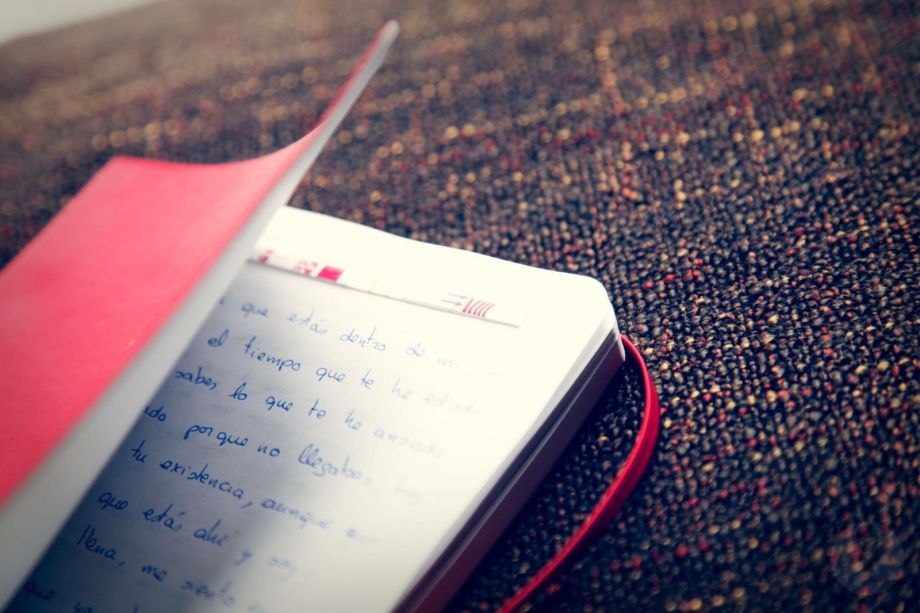 que estás dentro de
el tiempo que te he estado
sabes lo que te he ansiado
porque no llegabas,
tu existencia, aunque
que estás ahí y soy
llena, me siento
que